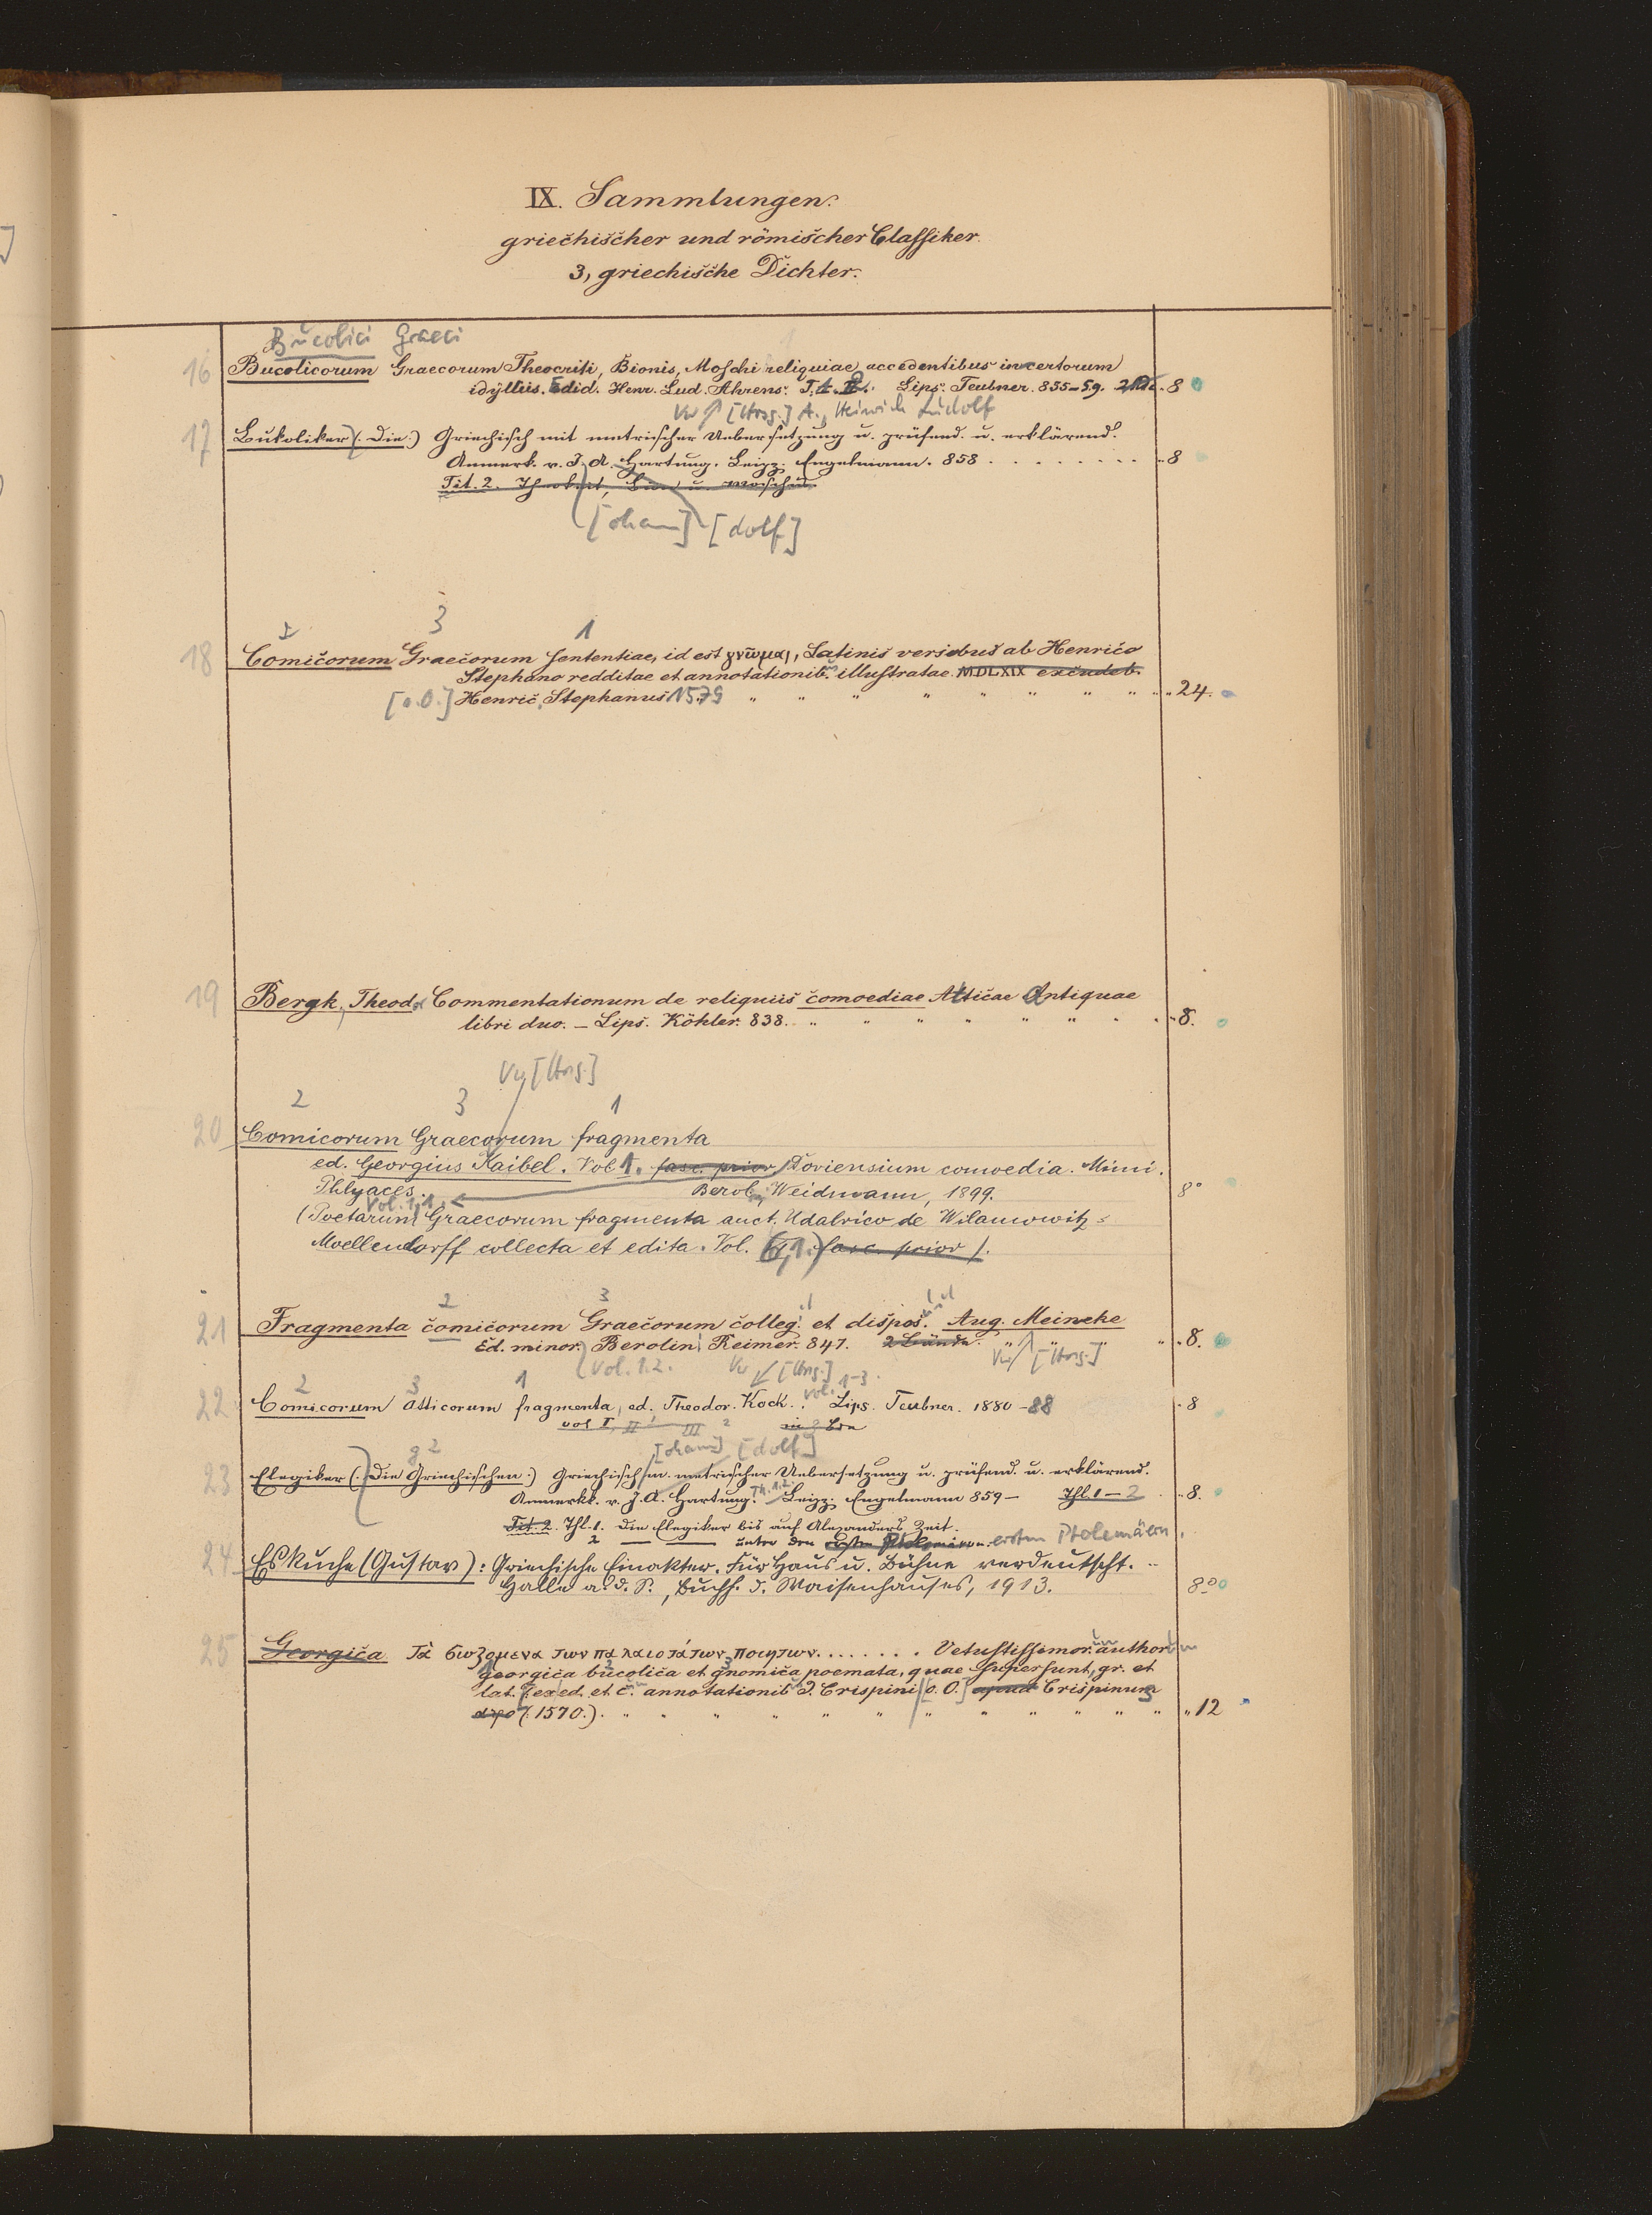 IX. Sammlungen.
griechischer und römischer Classiker.
3, griechische Dichter.
Bucolici Graeci
16 Bucolicorum Graecorum Theocriti, Bionis, Moschi reliquiae accedentibus incertorum
idylliis. Edid. Henr. Lud. Ahrens. T. 1. 2. Lips. Teubner. 855-59. „8
Vw [Hrsg.] A., Heinrich Ludolf
17 Bukoliker (: Die :) Griechisch mit metrischer Uebersetzung u. prüfend. u. erklärend.
Anmerk. v. J. A. Hartung. Leipz. Engelmann. 858 . . . . . . . . „8
Tit. 2. Theokrit, Bion u. Moschus.
[ohann] [dolf]
2 3 1
18 Comicorum Graecorum sententiae, id est γνῶμαι, Latinis versibus ab Henrico
Stephano redditae et annotationib. illustratae. MDLXIX excudeb.
[o.O.] Henric. Stephanus 1579 „ „ „ „ „ „ „ „ „24.
19 Bergk, Theod. Commentationum de reliquiis comoediae Atticae Antiquae
libri duo. – Lips. Köhler. 838. „ „ „ „ „ „ „ „8.
Vw [Hrsg.]
2 3 1
20 Comicorum Graecorum fragmenta
ed. Georgius Kaibel. Vol. 1. fasc. prior Doriensium comoedia. Mimi.
Phlyaces. Berol., Weidmann, 1899. 8°
Vol. 1,1
(Poetarum Graecorum fragmenta auct. Udalrico de Wilamowitz-
Moellendorff collecta et edita. Vol. 6,1. fasc. prior).
2 3
21 Fragmenta comicorum Graecorum colleg. et dispos. Aug. Meineke
Ed. minor. Berolin. Reimer. 847. 2 Bände. „ „ „ „8.
Vol. 1.2. Vw [Hrsg.] Vw [Hrsg.]
2 3 1 vol. 1-3.
22 Comicorum Atticorum fragmenta, ed. Theodor. Kock. Lips. Teubner. 1880-88 „8
vol I, II III
[ohann] [dolf]
23 Elegiker (: Die Griechischen :) Griechisch m. metrischer Uebersetzung u. prüfend. u. erklärend.
Anmerkk. v. J. A. Hartung. Th. 1.2. Leipz. Engelmann 859- Thl. 1-2 „8.
Tit. 2. Thl. 1. Die Elegiker bis auf Alexanders Zeit.
2 — — unter den ersten Ptolemäern. ersten Ptolemäern.
24 Eskuche (Gustav): Griechische Einakter. Für Haus u. Bühne verdeutscht.
Halle a. d. S., Buchh. d. Waisenhauses, 1913. 8°
25 Georgica Τὰ σωζομενα των παλαιοτάτων ποιητων. . . . . . . . Vetustissimor. author.
Georgica bucolica et gnomica poemata, quae supersunt, gr. et
lat. ex ed. et c. annotationib. J. Crispini [o. O.] apud Crispinum
(: 1570.) „ „ „ „ „ „ „ „ „ „ „12